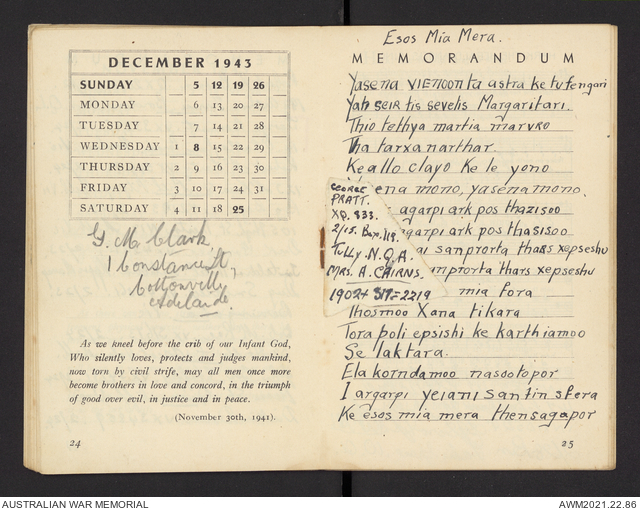 DECEMBER 1943
SUNDAY 5 12 19 26
MONDAY 6 13 20 27
TUESDAY 7 14 21 28
WEDNESDAY 1 8 15 22 29
THURSDAY 2 9 16 23 30
FRIDAY 3 10 17 24 31
SATURDAY 4 11 18 25
G. M. Clark,
1 Constance St,
Cottonville,
Adelaide.
As we kneel before the crib of our Infant God,
Who silently loves, protects and judges mankind,
now torn by civil strife, may all men once more
become brothers in love and concord, in the triumph
of good over evil, in justice and in peace.
(November 30th, 1941).
24
Esos Mia Mera.
MEMORANDUM
Yasena VIEMOONTA astra ke tu fengari
Yah SEIR tis sevelis Margaritari.
Thio tethya martia marvro
Tha tarxanarthar.
Ke allo clayo Ke le yono
ena mono, yasena mono.
agarpi ark pos thazisoo
garpi ark pos thasisoo
ai sanprorta thars xepseshu
mprorta thars xepseshu
mia fora
Thosmoo Xana tikara
Tora poli epsishi ke karthiamoo
Se laktara.
Ela korndamoo nasootopor
I argarpi yeiani santin sfera
Ke esos mia mera thensagapor
GEORGE
PRATT.
XQ. 833.
2/15. Box.118.
TULLY N.Q.A.
MRS. A. CAIRNS.
1902+317=2219
25
AUSTRALIAN WAR MEMORIAL
AWM2021.22.86